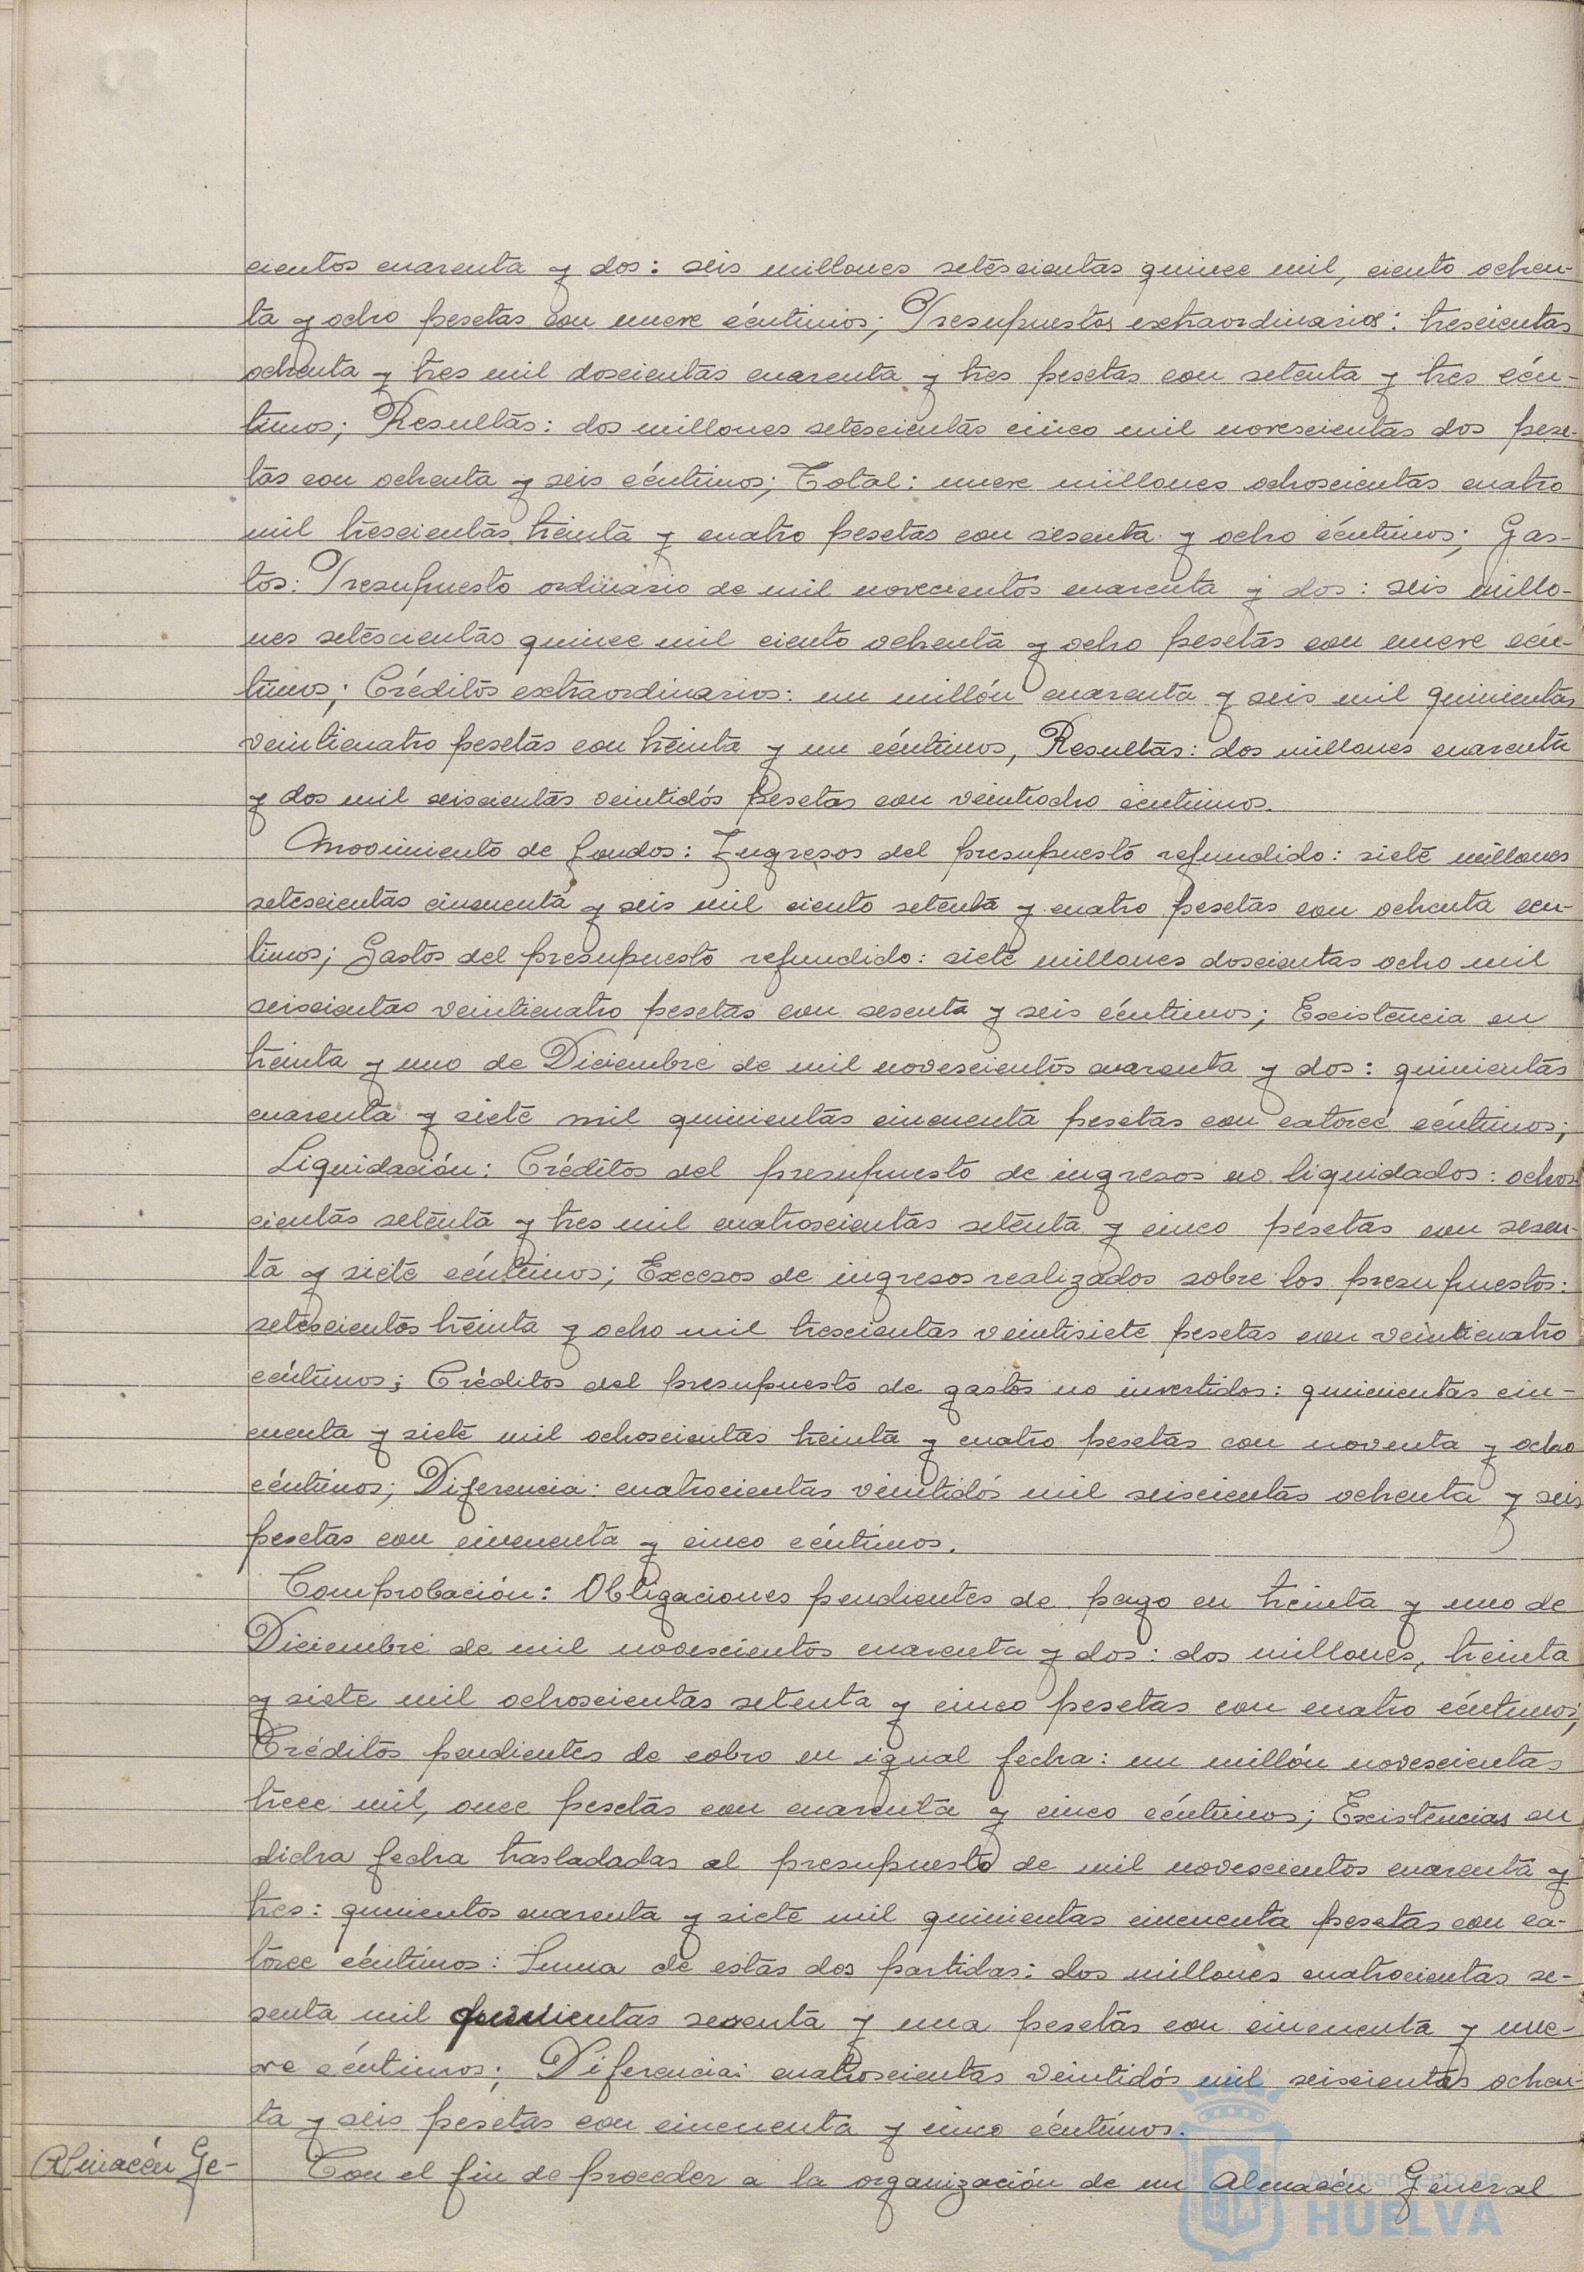 cientos cuarenta y dos: seis millones setescientas quince mil, ciento ochen-
ta y ocho pesetas con nueve céntimos; Presupuestos extraordinarios: trescientas
ochenta y tres mil doscientas cuarenta y tres pesetas con setenta y tres cén-
timos; Resultas: dos millones setescientas cinco mil novescientas dos pese-
tas con ochenta y seis céntimos; Total: nueve millones ochoscientas cuatro
mil trescientas treinta y cuatro pesetas con sesenta y ocho céntimos; Gas-
tos: Presupuesto ordinario de mil novecientos cuarenta y dos: seis millo-
nes setescientas quince mil ciento ochenta y ocho pesetas con nueve cén-
timos; Créditos extraordinarios: un millón cuarenta y seis mil quinientas
veinticuatro pesetas con treinta y un céntimos, Resultas: dos millones cuarenta
y dos mil seiscientas veintidós pesetas con veintiocho céntimos.
Movimiento de fondos: Ingresos del presupuesto refundido: siete millones
setescientas cincuenta y seis mil ciento setenta y cuatro pesetas con ochenta cen-
timos; Gastos del presupuesto refundido: siete millones doscientas ocho mil
seiscientas veinticuatro pesetas con sesenta y seis céntimos; Existencia en
treinta y uno de Diciembre de mil novescientos cuarenta y dos: quinientas
cuarenta y siete mil quinientas cincuenta pesetas con catorce céntimos;
Liquidación: Créditos del presupuesto de ingresos no liquidados: ochos
cientas setenta y tres mil cuatroscientas setenta y cinco pesetas con sesen-
ta y siete céntimos; Excesos de ingresos realizados sobre los presupuestos:
setescientos treinta y ocho mil trescientas veintisiete pesetas con veinticuatro
céntimos; Créditos del presupuesto de gastos no invertidos: quinientas cin-
cuenta y siete mil ochoscientas treinta y cuatro pesetas con noventa y ocho
céntimos; Diferencia: cuatrocientas veintidós mil seiscientas ochenta y seis
pesetas con cincuenta y cinco céntimos.
Comprobación: Obligaciones pendientes de pago en treinta y uno de
Diciembre de mil novescientos cuarenta y dos: dos millones, treinta
y siete mil ochoscientas setenta y cinco pesetas con cuatro céntimos;
Créditos pendientes de cobro en igual fecha: un millón novescientas
trece mil, once pesetas con cuarenta y cinco céntimos; Existencias en
dicha fecha trasladadas al presupuesto de mil novescientos cuarenta y
tres: quinientos cuarenta y siete mil quinientas cincuenta pesetas con ca-
torce céntimos: Suma de estas dos partidas: dos millones cuatrocientas se-
senta mil quinientas sesenta y una pesetas con cincuenta y nue-
ve céntimos; Diferencia: cuatroscientas veintidós mil seiscientas ochen-
ta y seis pesetas con cincuenta y cinco céntimos.
Almacén Ge-
Con el fin de proceder a la organización de un Almacén General
Ayuntamiento de
HUELVA